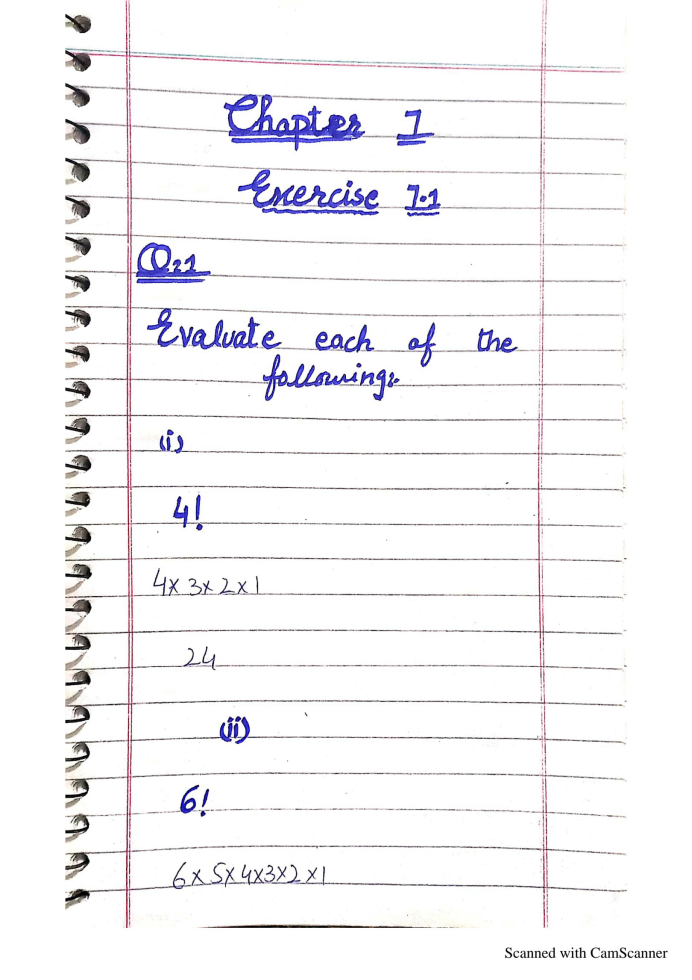 Chapter 7
Exercise 7.1
Q:1
Evaluate each of the
following:-
(i)
4!
4x 3x 2x1
24
(ii)
6!
6x5x4x3x2x1
Scanned with CamScanner